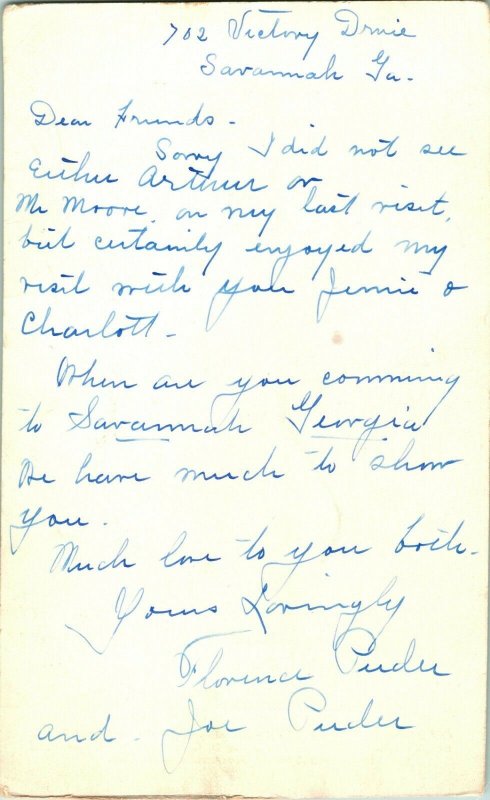 702 Victory Drive
Savannah Ga.
Dear Friends -
Sorry I did not see
Either Arthur or
Mr Moore, on my last visit,
but certainily enjoyed my
visit with you Jennie &
Charlott -
When are you comming
to Savannah Georgia
We have much to show
you.
Much love to you both.
Yours Lovingly
Florence Puder
and Joe Puder